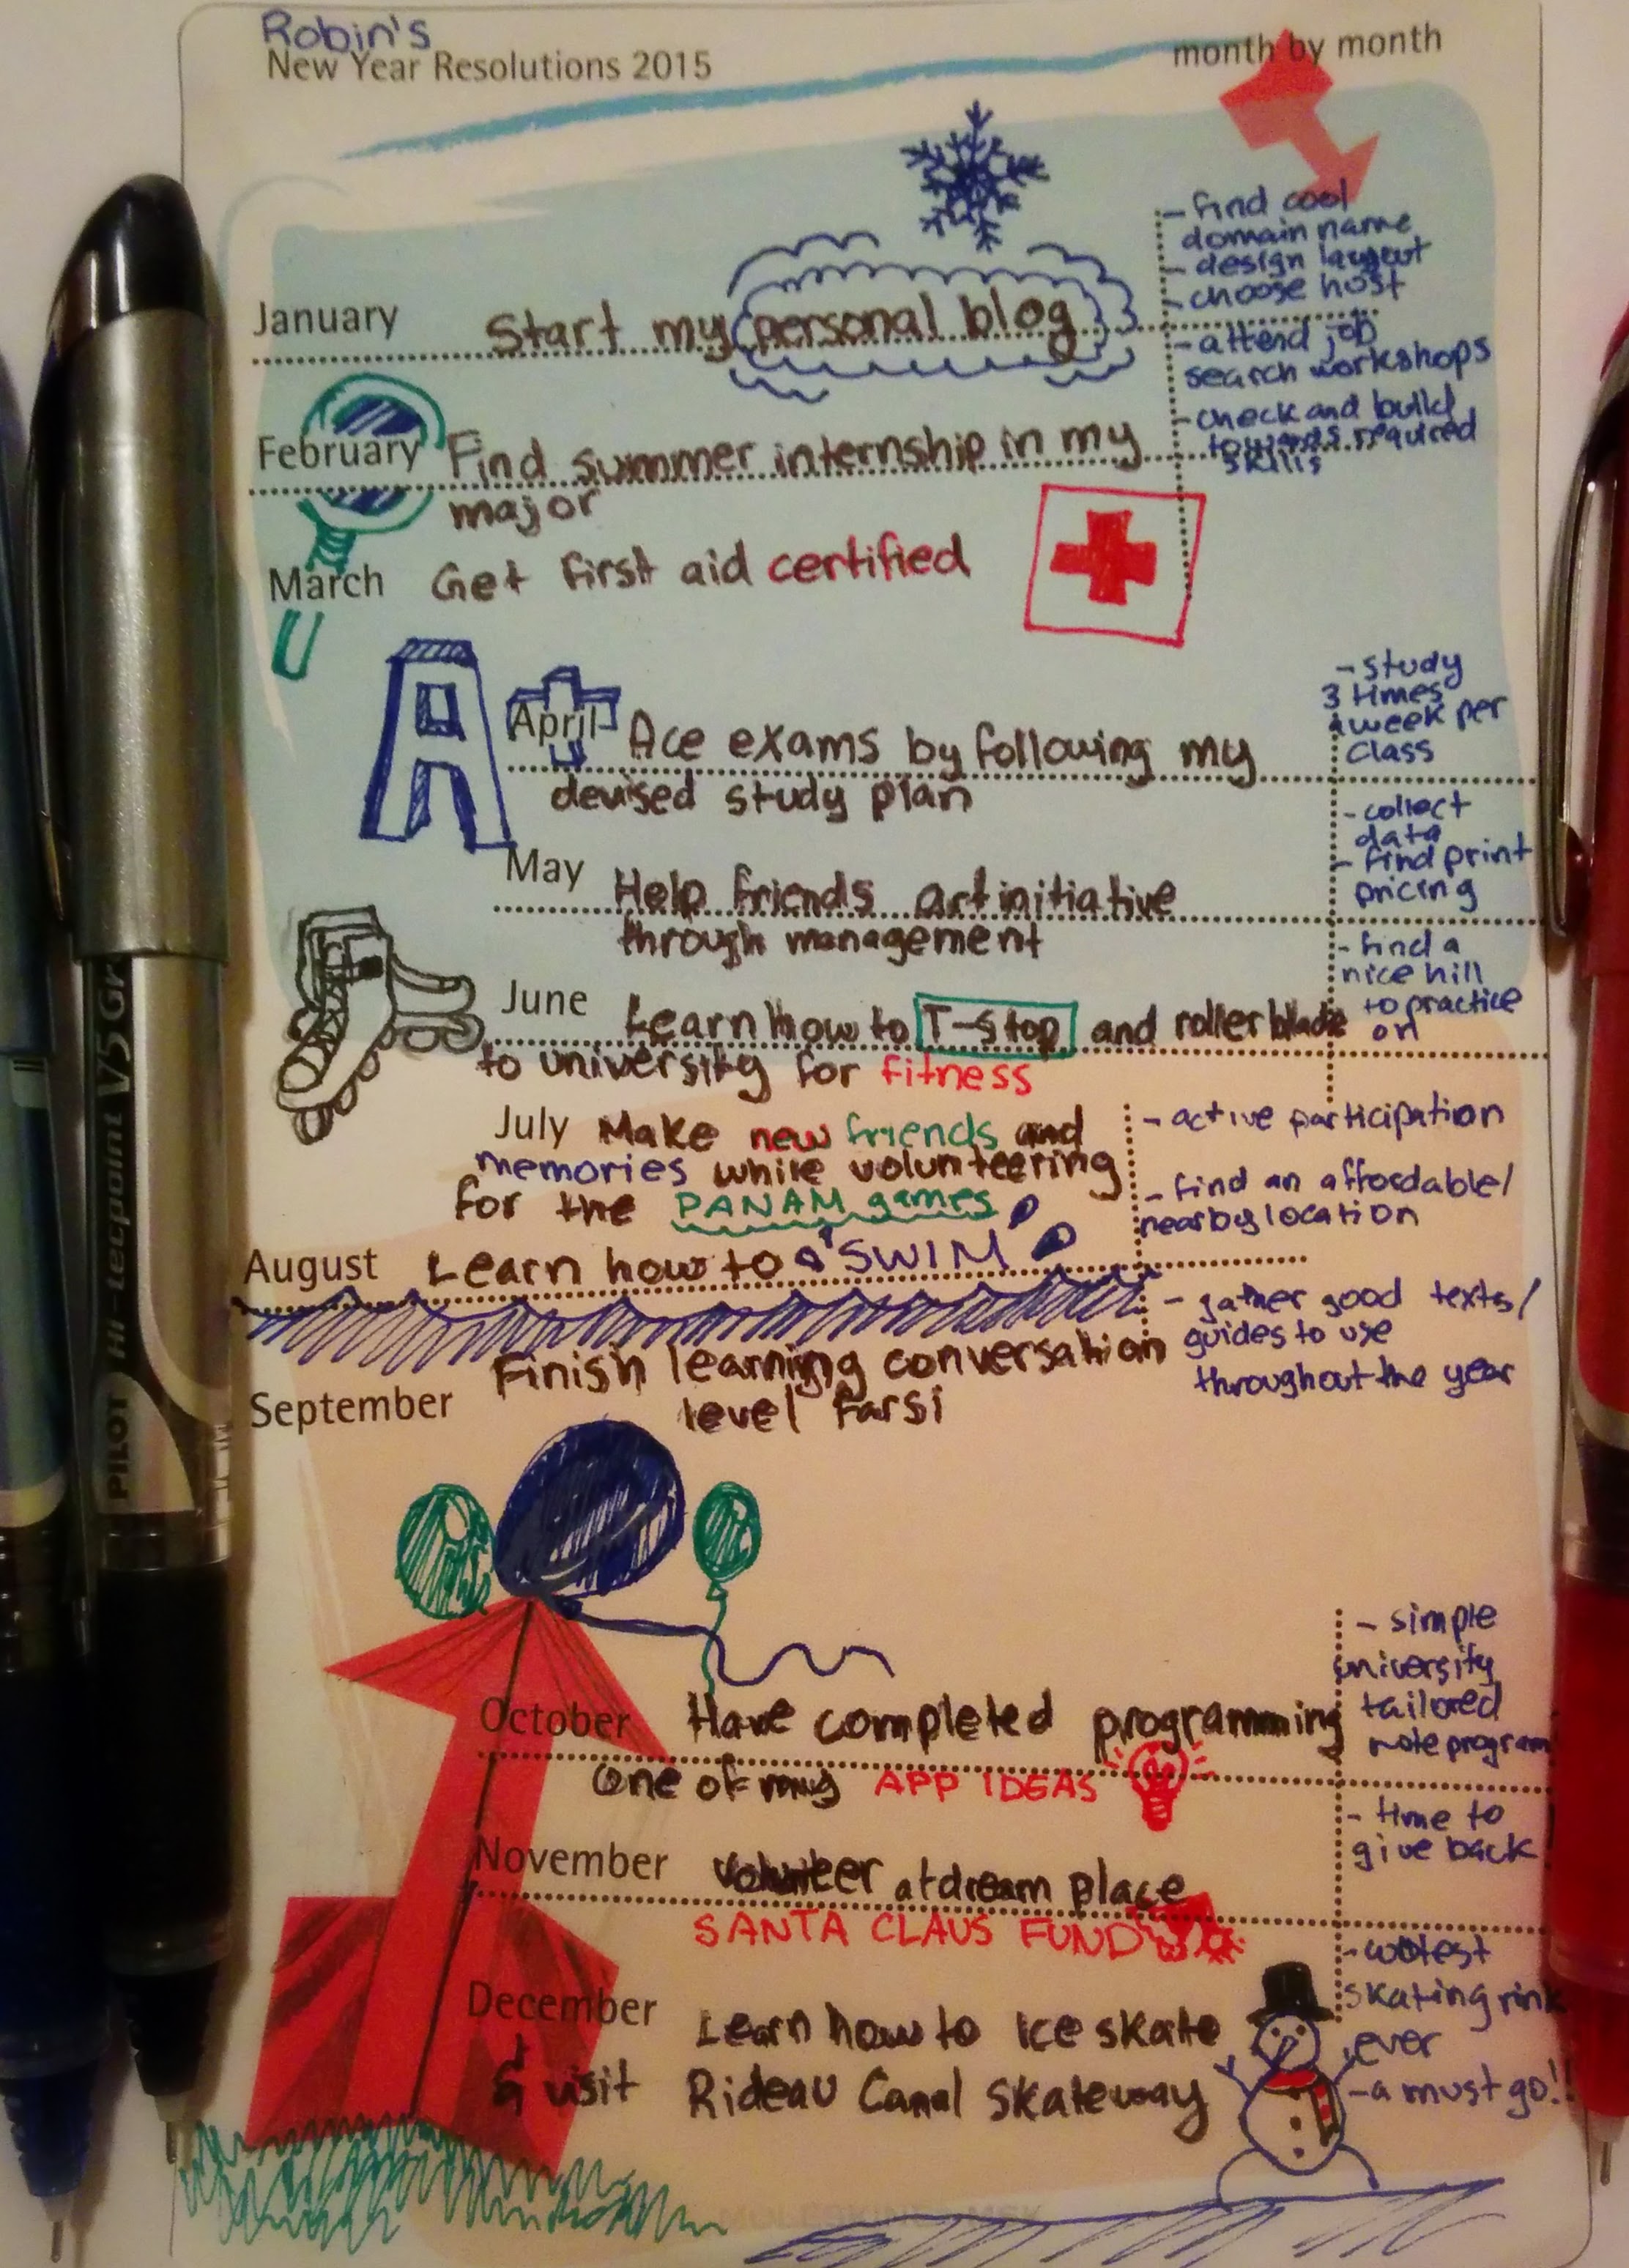 Robin's
New Year Resolutions 2015
month by month
- find cool
domain name
- design layout
- choose host
January
Start my personal blog
- attend job
search workshops
- check and build
towards required
skills
February
Find summer internship in my
major
March
Get first aid certified
- study
3 times
a week per
class
A+
April
Ace exams by following my
devised study plan
- collect
data
- find print
pricing
May
Help friends art initiative
through management
- find a
nice hill
to practice
on
June
Learn how to T-stop and roller blade
to university for fitness
July
Make new friends and
memories while volunteering
for the PANAM games
- active participation
- find an affordable/
nearby location
August
Learn how to SWIM
- gather good texts/
guides to use
throughout the year
September
Finish learning conversation
level Farsi
- simple
university
tailored
note program
October
Have completed programming
one of my APP IDEAS
- time to
give back
November
Volunteer at dream place
SANTA CLAUS FUND
- coolest
skating rink
ever
- a must go!!
December
Learn how to Ice skate
& visit Rideau Canal Skateway
PILOT Hi-tecpoint V5 Gr
MOLESKINE